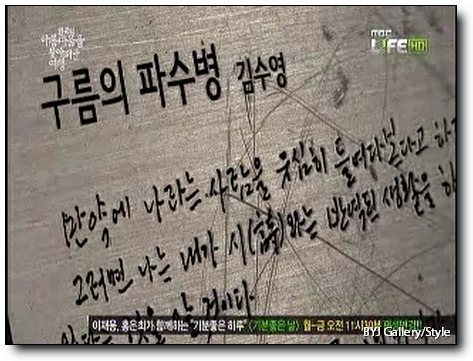 한국의
아름다움을
찾아떠난
여행
mbc
LIFE HD
구름의 파수병 김수영
만약에 나라는 사람을 유심히 들여다본다고 하
그러면 나는 내가 시(詩)와는 반역된 생활을 하
것을 것이다
이재용, 홍은희가 함께하는 '기분좋은 하루' <기분좋은 날> 월~금 오전 11시30분
BYJ Gallery/Style